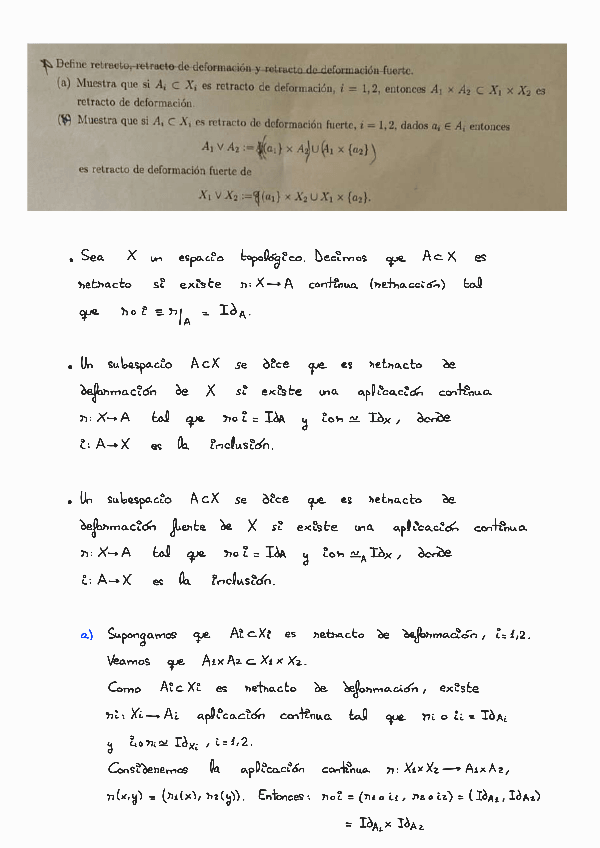 Define retracto, retracto de deformación y retracto de deformación fuerte.
(a) Muestra que si Aᵢ ⊂ Xᵢ es retracto de deformación, i = 1, 2, entonces A₁ × A₂ ⊂ X₁ × X₂ es
retracto de deformación.
(b) Muestra que si Aᵢ ⊂ Xᵢ es retracto de deformación fuerte, i = 1, 2, dados aᵢ ∈ Aᵢ entonces
A₁ ∨ A₂ := ({a₁} × A₂) ∪ (A₁ × {a₂})
es retracto de deformación fuerte de
X₁ ∨ X₂ := {a₁} × X₂ ∪ X₁ × {a₂}.
• Sea X un espacio topológico. Decimos que A⊂X es
retracto si existe r: X→A continua (retracción) tal
que r∘i ≡ r|_A = Id_A.
• Un subespacio A⊂X se dice que es retracto de
deformación de X si existe una aplicación continua
r: X→A tal que r∘i = Id_A y i∘r ≃ Id_X, donde
i: A→X es la inclusión.
• Un subespacio A⊂X se dice que es retracto de
deformación fuerte de X si existe una aplicación continua
r: X→A tal que r∘i = Id_A y i∘r ≃_A Id_X, donde
i: A→X es la inclusión.
a) Supongamos que Aᵢ⊂Xᵢ es retracto de deformación, i=1,2.
Veamos que A₁×A₂ ⊂ X₁×X₂.
Como Aᵢ⊂Xᵢ es retracto de deformación, existe
rᵢ: Xᵢ→Aᵢ aplicación continua tal que rᵢ∘iᵢ = Id_Aᵢ
y iᵢ∘rᵢ ≃ Id_Xᵢ, i=1,2.
Consideremos la aplicación continua r: X₁×X₂ → A₁×A₂,
r(x,y) = (r₁(x), r₂(y)). Entonces: r∘i = (r₁∘i₁, r₂∘i₂) = (Id_A₁, Id_A₂)
= Id_A₁ × Id_A₂